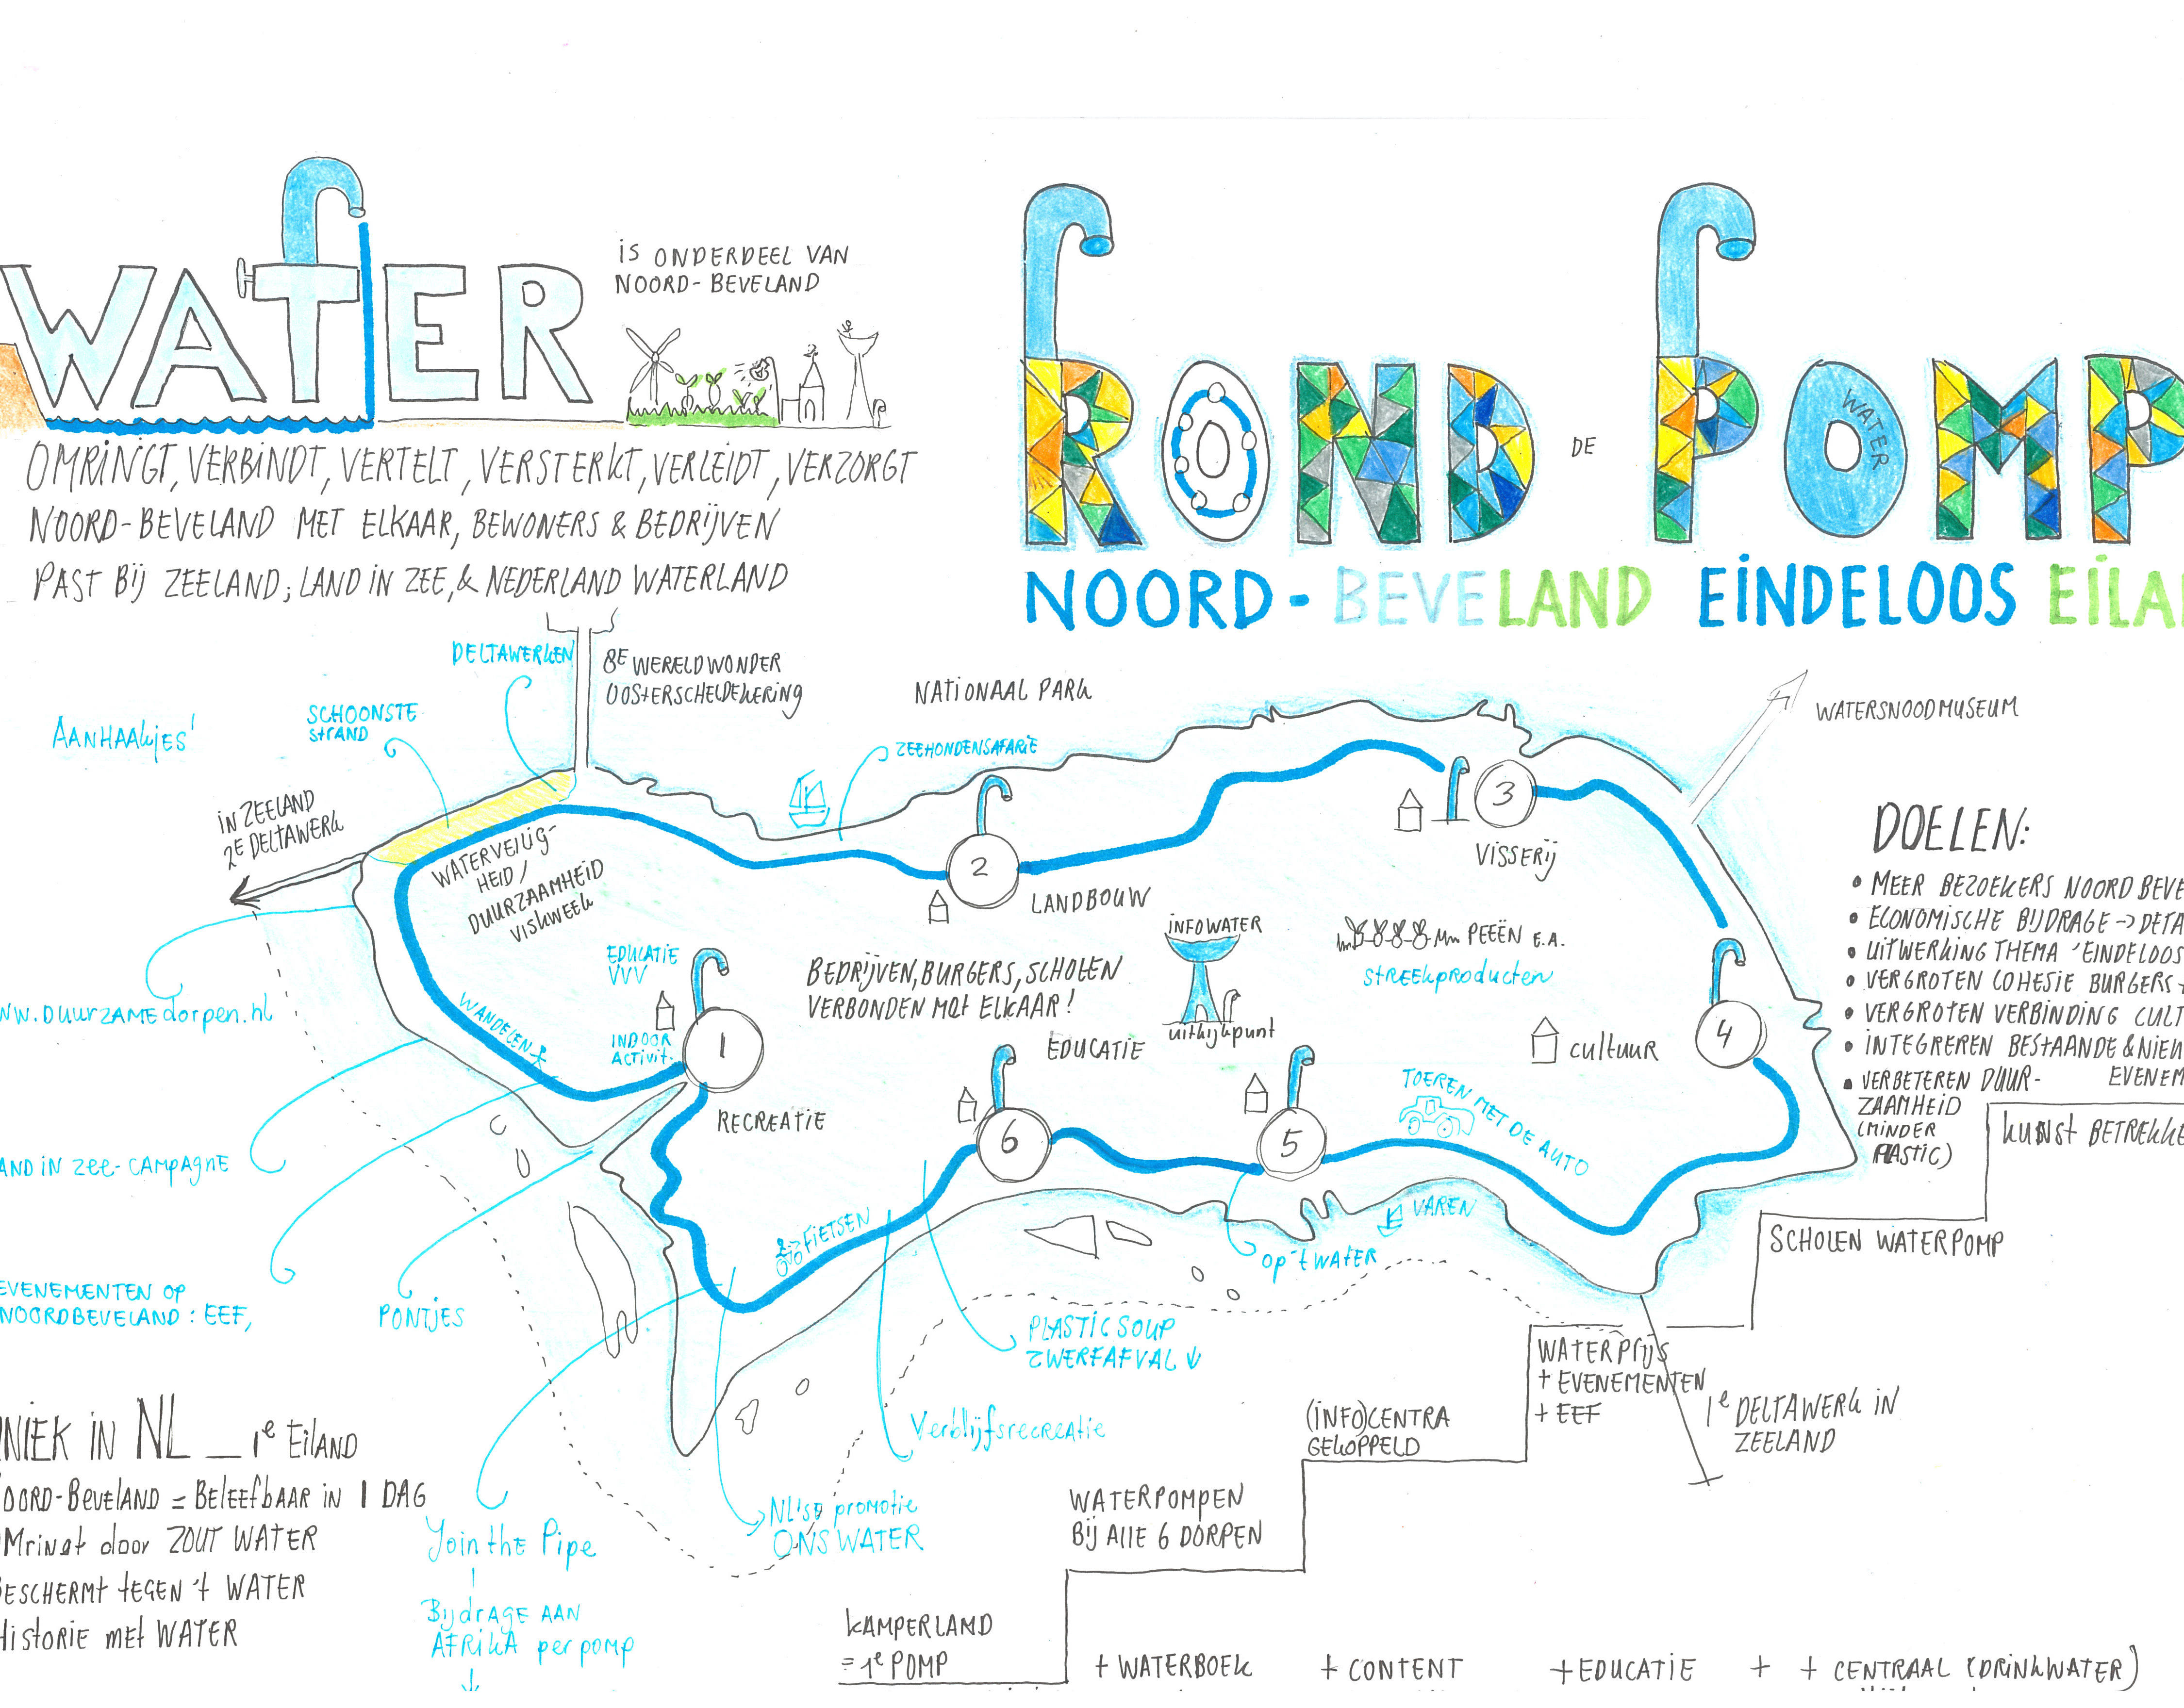 WATER
iS ONDERDEEL VAN
NOORD-BEVELAND
OMRINGT, VERBINDT, VERTELT, VERSTERKT, VERLEIDT, VERZORGT
NOORD-BEVELAND MET ELKAAR, BEWONERS & BEDRIJVEN
PAST BIJ ZEELAND; LAND IN ZEE, & NEDERLAND WATERLAND
ROND DE POMP
WATER
NOORD-BEVELAND EINDELOOS EILA
DELTAWERKEN
8E WERELDWONDER
OOSTERSCHELDEKERING
NATIONAAL PARK
WATERSNOODMUSEUM
AANHAAKJES'
SCHOONSTE
STRAND
ZEEHONDENSAFARIE
IN ZEELAND
2E DELTAWERK
WATERVEILIG-
HEID /
DUURZAAMHEID
VISKWEEK
2
LANDBOUW
3
VISSERIJ
DOELEN:
• MEER BEZOEKERS NOORD BEVE
• ECONOMISCHE BIJDRAGE -> DETA
• UITWERKING THEMA 'EINDELOOS
• VERGROTEN COHESIE BURGERS
• VERGROTEN VERBINDING CULT
• INTEGREREN BESTAANDE & NIEU
EVENEM
• VERBETEREN DUUR-
ZAAMHEID
(MINDER
PLASTIC)
KUNST BETREKKE
EDUCATIE
VVV
INDOOR
ACTIVIT.
1
RECREATIE
BEDRIJVEN, BURGERS, SCHOLEN
VERBONDEN MET ELKAAR!
INFOWATER
uitkijkpunt
PEEËN E.A.
STREEKPRODUCTEN
CULTUUR
4
WANDELEN
WW.DUURZAMEdorpen.nl
EDUCATIE
6
5
TOEREN MET DE AUTO
AND IN ZEE-CAMPAGNE
FIETSEN
VAREN
OP 'T WATER
SCHOLEN WATERPOMP
EVENEMENTEN OP
NOORDBEVELAND: EEF,
PONTJES
PLASTIC SOUP
ZWERFAFVAL ↓
WATERPRIJS
+ EVENEMENTEN
+ EEF
1e DELTAWERK IN
ZEELAND
Verblijfsrecreatie
(INFO)CENTRA
GEKOPPELD
NIEK IN NL _ 1e EILAND
OORD-BEVELAND = BELEEFBAAR IN 1 DAG
MRINGT door ZOUT WATER
BESCHERMT TEGEN 't WATER
HISTORIE MET WATER
NL'se promotie
ONS WATER
WATERPOMPEN
BIJ ALLE 6 DORPEN
Join the Pipe
BIJDRAGE AAN
AFRIKA per pomp
KAMPERLAND
= 1e POMP
+ WATERBOEK
+ CONTENT
+ EDUCATIE
+ + CENTRAAL (DRINKWATER)